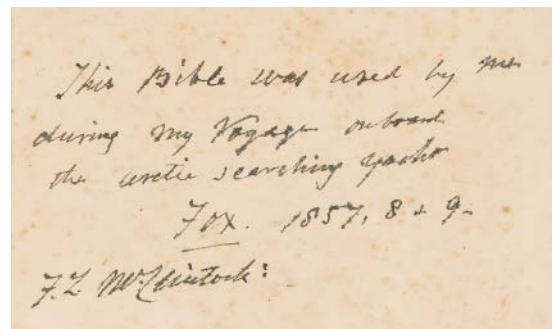 This Bible was used by me
during my Voyage onboard
the arctic searching yacht
Fox. 1857, 8 & 9.
F. L. McClintock: